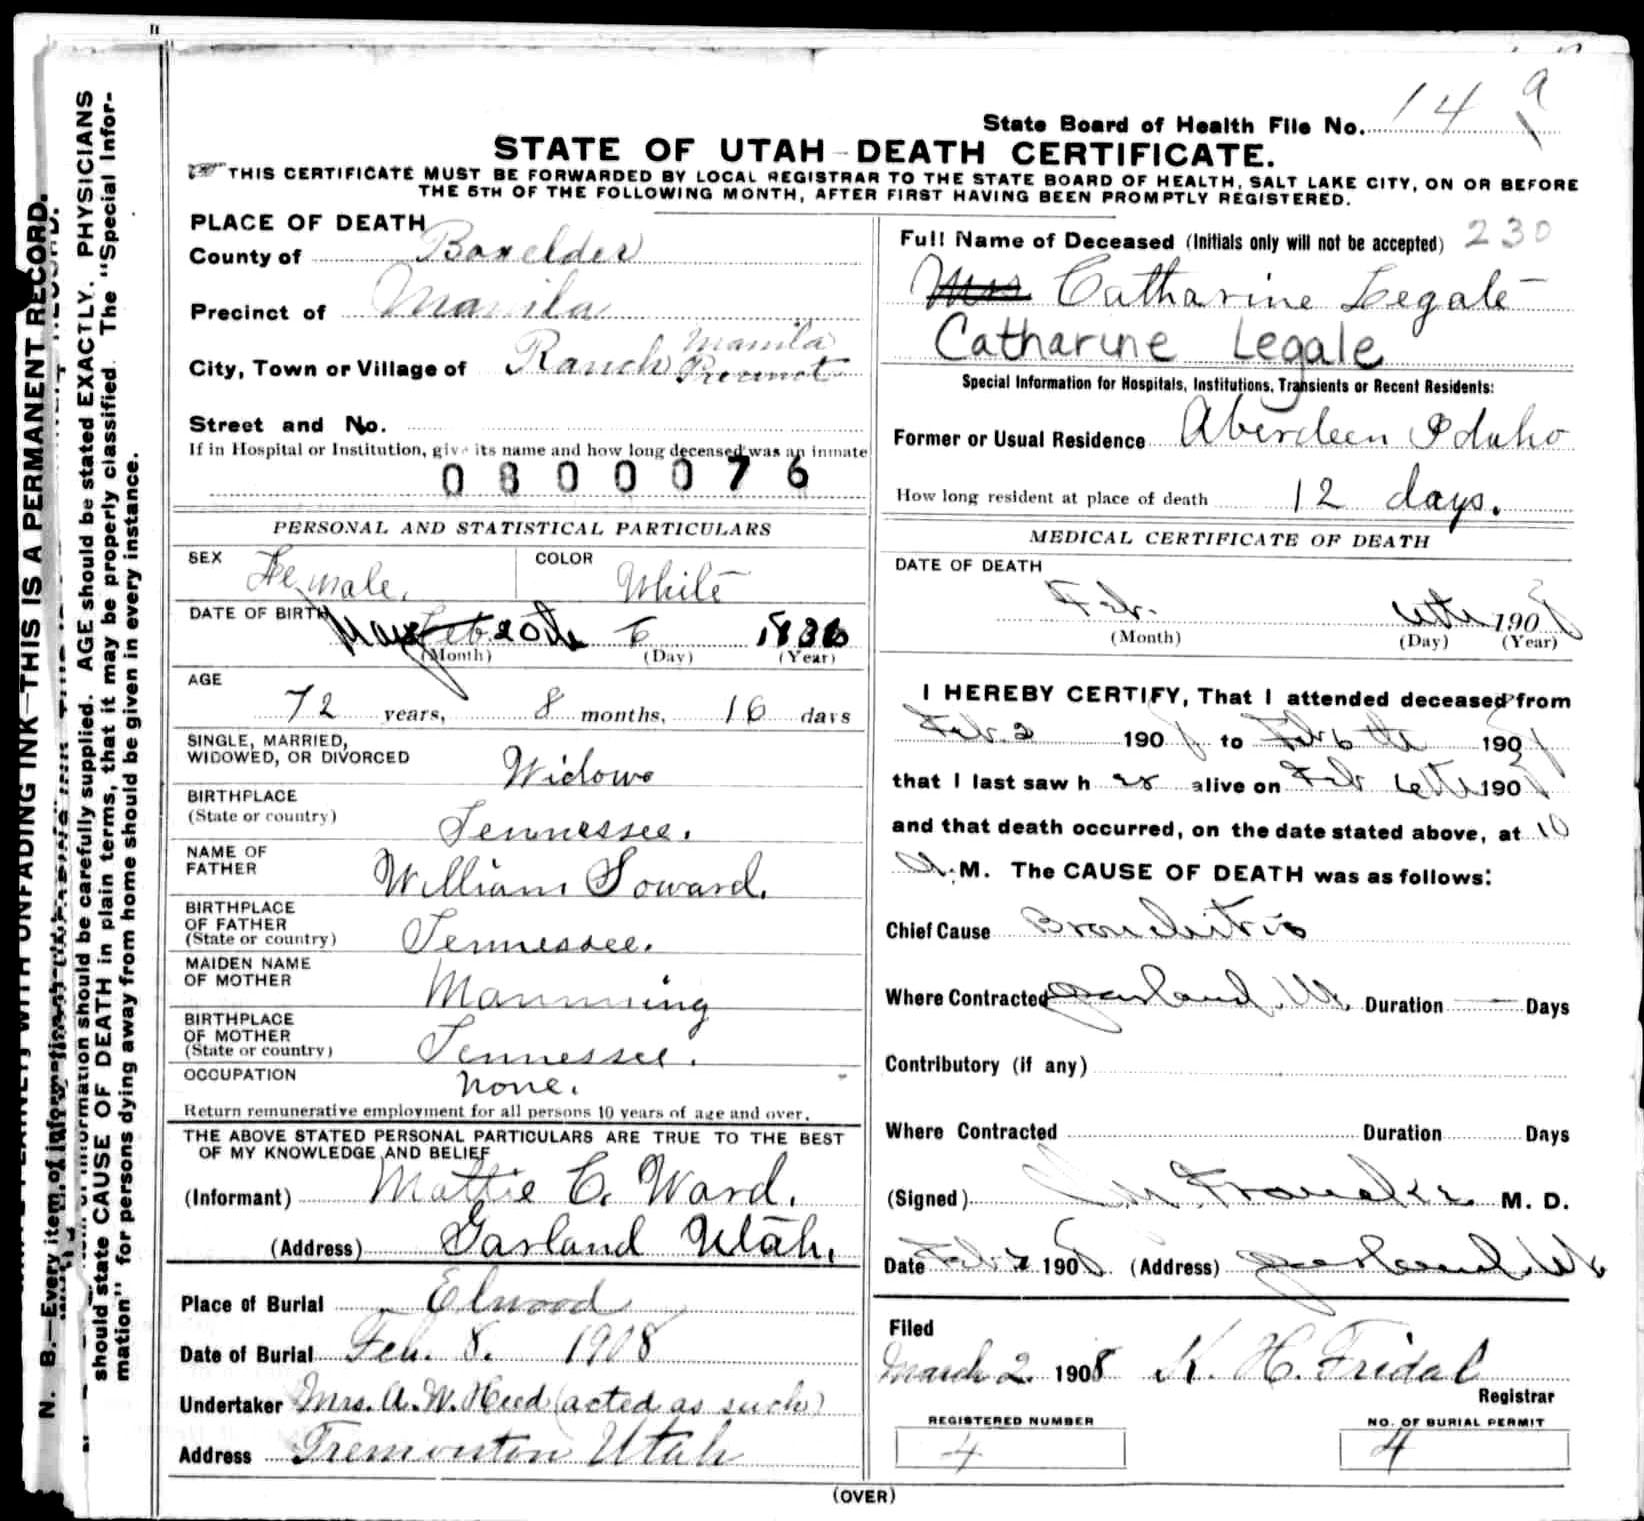 State Board of Health File No. 14 9
STATE OF UTAH - DEATH CERTIFICATE.
THIS CERTIFICATE MUST BE FORWARDED BY LOCAL REGISTRAR TO THE STATE BOARD OF HEALTH, SALT LAKE CITY, ON OR BEFORE
THE 5TH OF THE FOLLOWING MONTH, AFTER FIRST HAVING BEEN PROMPTLY REGISTERED.
PLACE OF DEATH
County of Boxelder
Precinct of Manila
City, Town or Village of Ranch Manila Precinct
Street and No.
If in Hospital or Institution, give its name and how long deceased was an inmate
0800076
PERSONAL AND STATISTICAL PARTICULARS
SEX Female. COLOR White
DATE OF BIRTH May Feb. 20th 6 1836
(Month) (Day) (Year)
AGE
72 years, 8 months, 16 days
SINGLE, MARRIED,
WIDOWED, OR DIVORCED Widow
BIRTHPLACE
(State or country) Tennessee.
NAME OF
FATHER William Soward.
BIRTHPLACE
OF FATHER
(State or country) Tennessee.
MAIDEN NAME
OF MOTHER Mannning
BIRTHPLACE
OF MOTHER
(State or country) Tennessee.
OCCUPATION none.
Return remunerative employment for all persons 10 years of age and over.
THE ABOVE STATED PERSONAL PARTICULARS ARE TRUE TO THE BEST
OF MY KNOWLEDGE AND BELIEF
(Informant) Mattie C. Ward.
(Address) Garland Utah.
Place of Burial Elwood
Date of Burial Feb. 8. 1908
Undertaker Mrs. A. W. Heed (acted as such)
Address Tremonton Utah
Full Name of Deceased (Initials only will not be accepted) 230
Mrs Catharine Legale
Catharine Legale
Special Information for Hospitals, Institutions, Transients or Recent Residents:
Former or Usual Residence Aberdeen Idaho
How long resident at place of death 12 days.
MEDICAL CERTIFICATE OF DEATH
DATE OF DEATH
Feb. 6th 1908
(Month) (Day) (Year)
I HEREBY CERTIFY, That I attended deceased from
Feb. 2 1908 to Feb 6th 1908
that I last saw her alive on Feb 6th 1908
and that death occurred, on the date stated above, at 10
A. M. The CAUSE OF DEATH was as follows:
Chief Cause Bronchitis
Where Contracted Garland, Ut. Duration Days
Contributory (if any)
Where Contracted Duration Days
(Signed) M. D.
Date Feb 7 1908. (Address) Garland, Ut
Filed
March 2 1908 K. H. Fridal
Registrar
REGISTERED NUMBER
4
NO. OF BURIAL PERMIT
4
(OVER)
THIS IS A PERMANENT RECORD.
N. B.—Every item of information should be carefully supplied. AGE should be stated EXACTLY. PHYSICIANS
should state CAUSE OF DEATH in plain terms, that it may be properly classified. The "Special Infor-
mation" for persons dying away from home should be given in every instance.